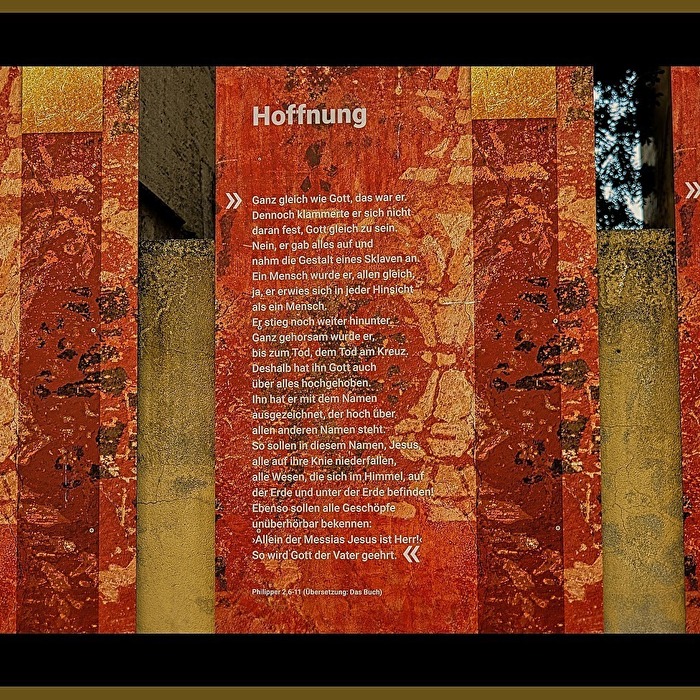 Hoffnung
» Ganz gleich wie Gott, das war er.
Dennoch klammerte er sich nicht
daran fest, Gott gleich zu sein.
Nein, er gab alles auf und
nahm die Gestalt eines Sklaven an.
Ein Mensch wurde er, allen gleich,
ja, er erwies sich in jeder Hinsicht
als ein Mensch.
Er stieg noch weiter hinunter.
Ganz gehorsam wurde er,
bis zum Tod, dem Tod am Kreuz.
Deshalb hat ihn Gott auch
über alles hochgehoben.
Ihn hat er mit dem Namen
ausgezeichnet, der hoch über
allen anderen Namen steht.
So sollen in diesem Namen, Jesus,
alle auf ihre Knie niederfallen,
alle Wesen, die sich im Himmel, auf
der Erde und unter der Erde befinden!
Ebenso sollen alle Geschöpfe
unüberhörbar bekennen:
›Allein der Messias Jesus ist Herr!‹
So wird Gott der Vater geehrt. «
Philipper 2,6-11 (Übersetzung: Das Buch)
»